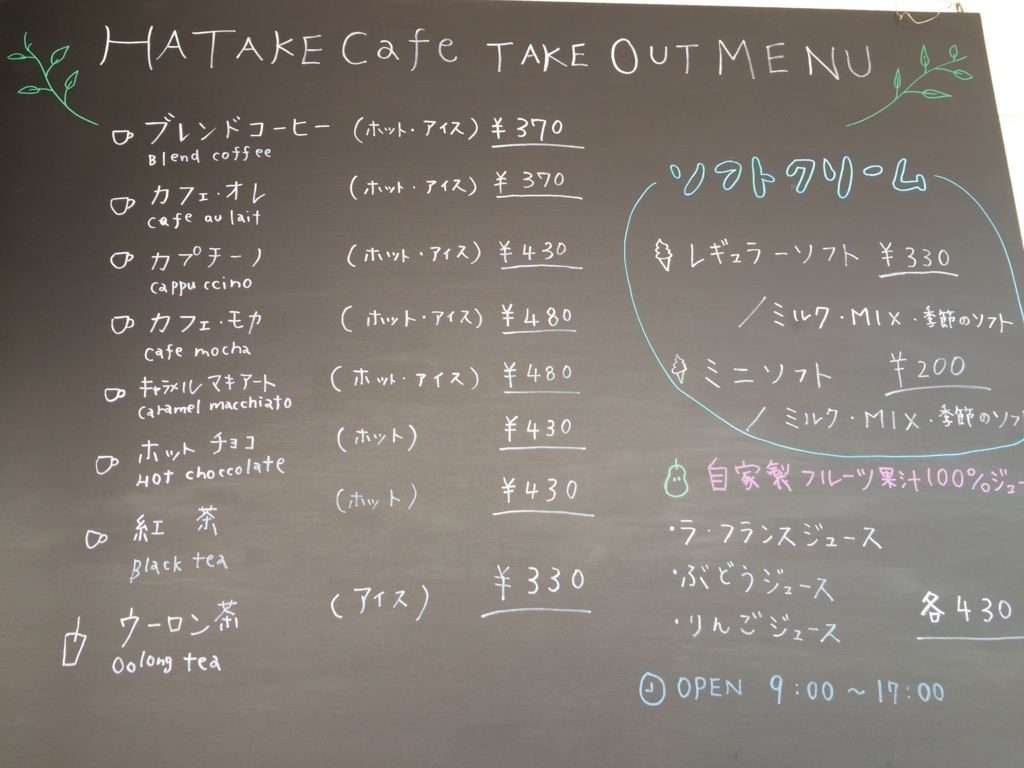 HATAKE Cafe TAKE OUT MENU
ブレンドコーヒー (ホット・アイス) ¥370
Blend coffee
カフェ・オレ (ホット・アイス) ¥370
cafe au lait
カプチーノ (ホット・アイス) ¥430
cappuccino
カフェ・モカ (ホット・アイス) ¥480
cafe mocha
キャラメルマキアート (ホット・アイス) ¥480
caramel macchiato
ホットチョコ (ホット) ¥430
HOt choccolate
紅茶 (ホット) ¥430
Black tea
ウーロン茶 (アイス) ¥330
Oolong tea
ソフトクリーム
レギュラーソフト ¥330
/ミルク・MIX・季節のソフト
ミニソフト ¥200
/ミルク・MIX・季節のソフ
自家製フルーツ果汁100%ジュー
・ラ・フランスジュース
・ぶどうジュース
・りんごジュース
各430
OPEN 9:00~17:00